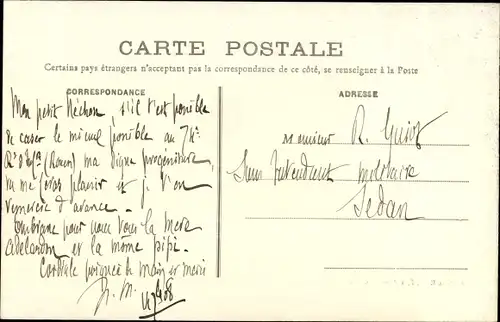 CARTE POSTALE
Certains pays étrangers n'acceptant pas la correspondance de ce côté, se renseigner à la Poste
CORRESPONDANCE
ADRESSE
Mon petit s'il t'est possible
de caser le mieux possible au 74e
(Rouen) ma digne progéniture,
tu me feras plaisir et je t'en
remercie d'avance.
pour nous tous la mère
et la môme pipi.
Cordiale poignée de main et merci
Monsieur R. Guiot
Sous Intendant militaire
Sedan